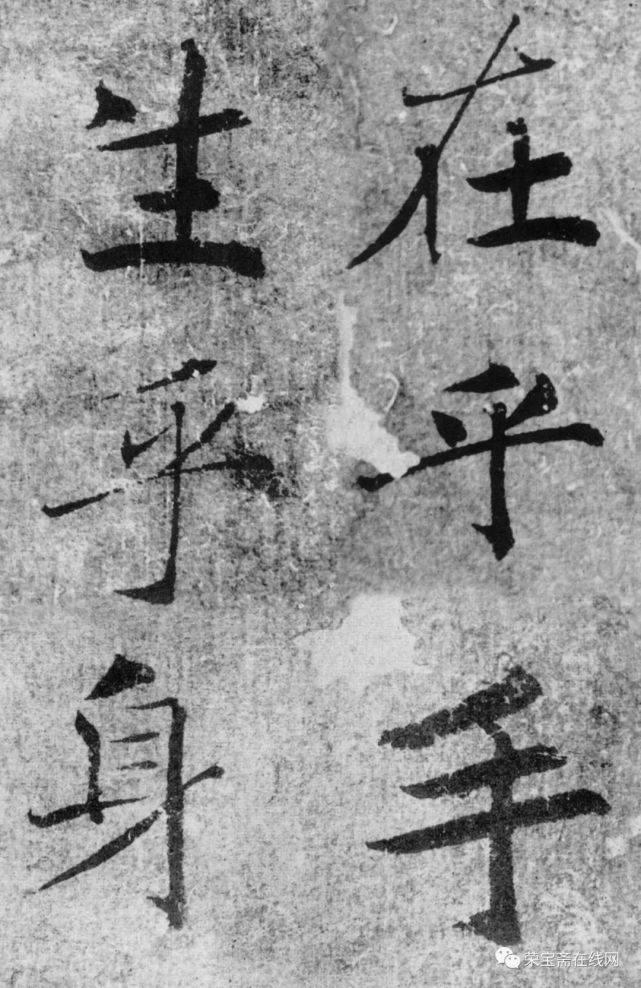 在乎手
生乎身
荣宝斋在线网